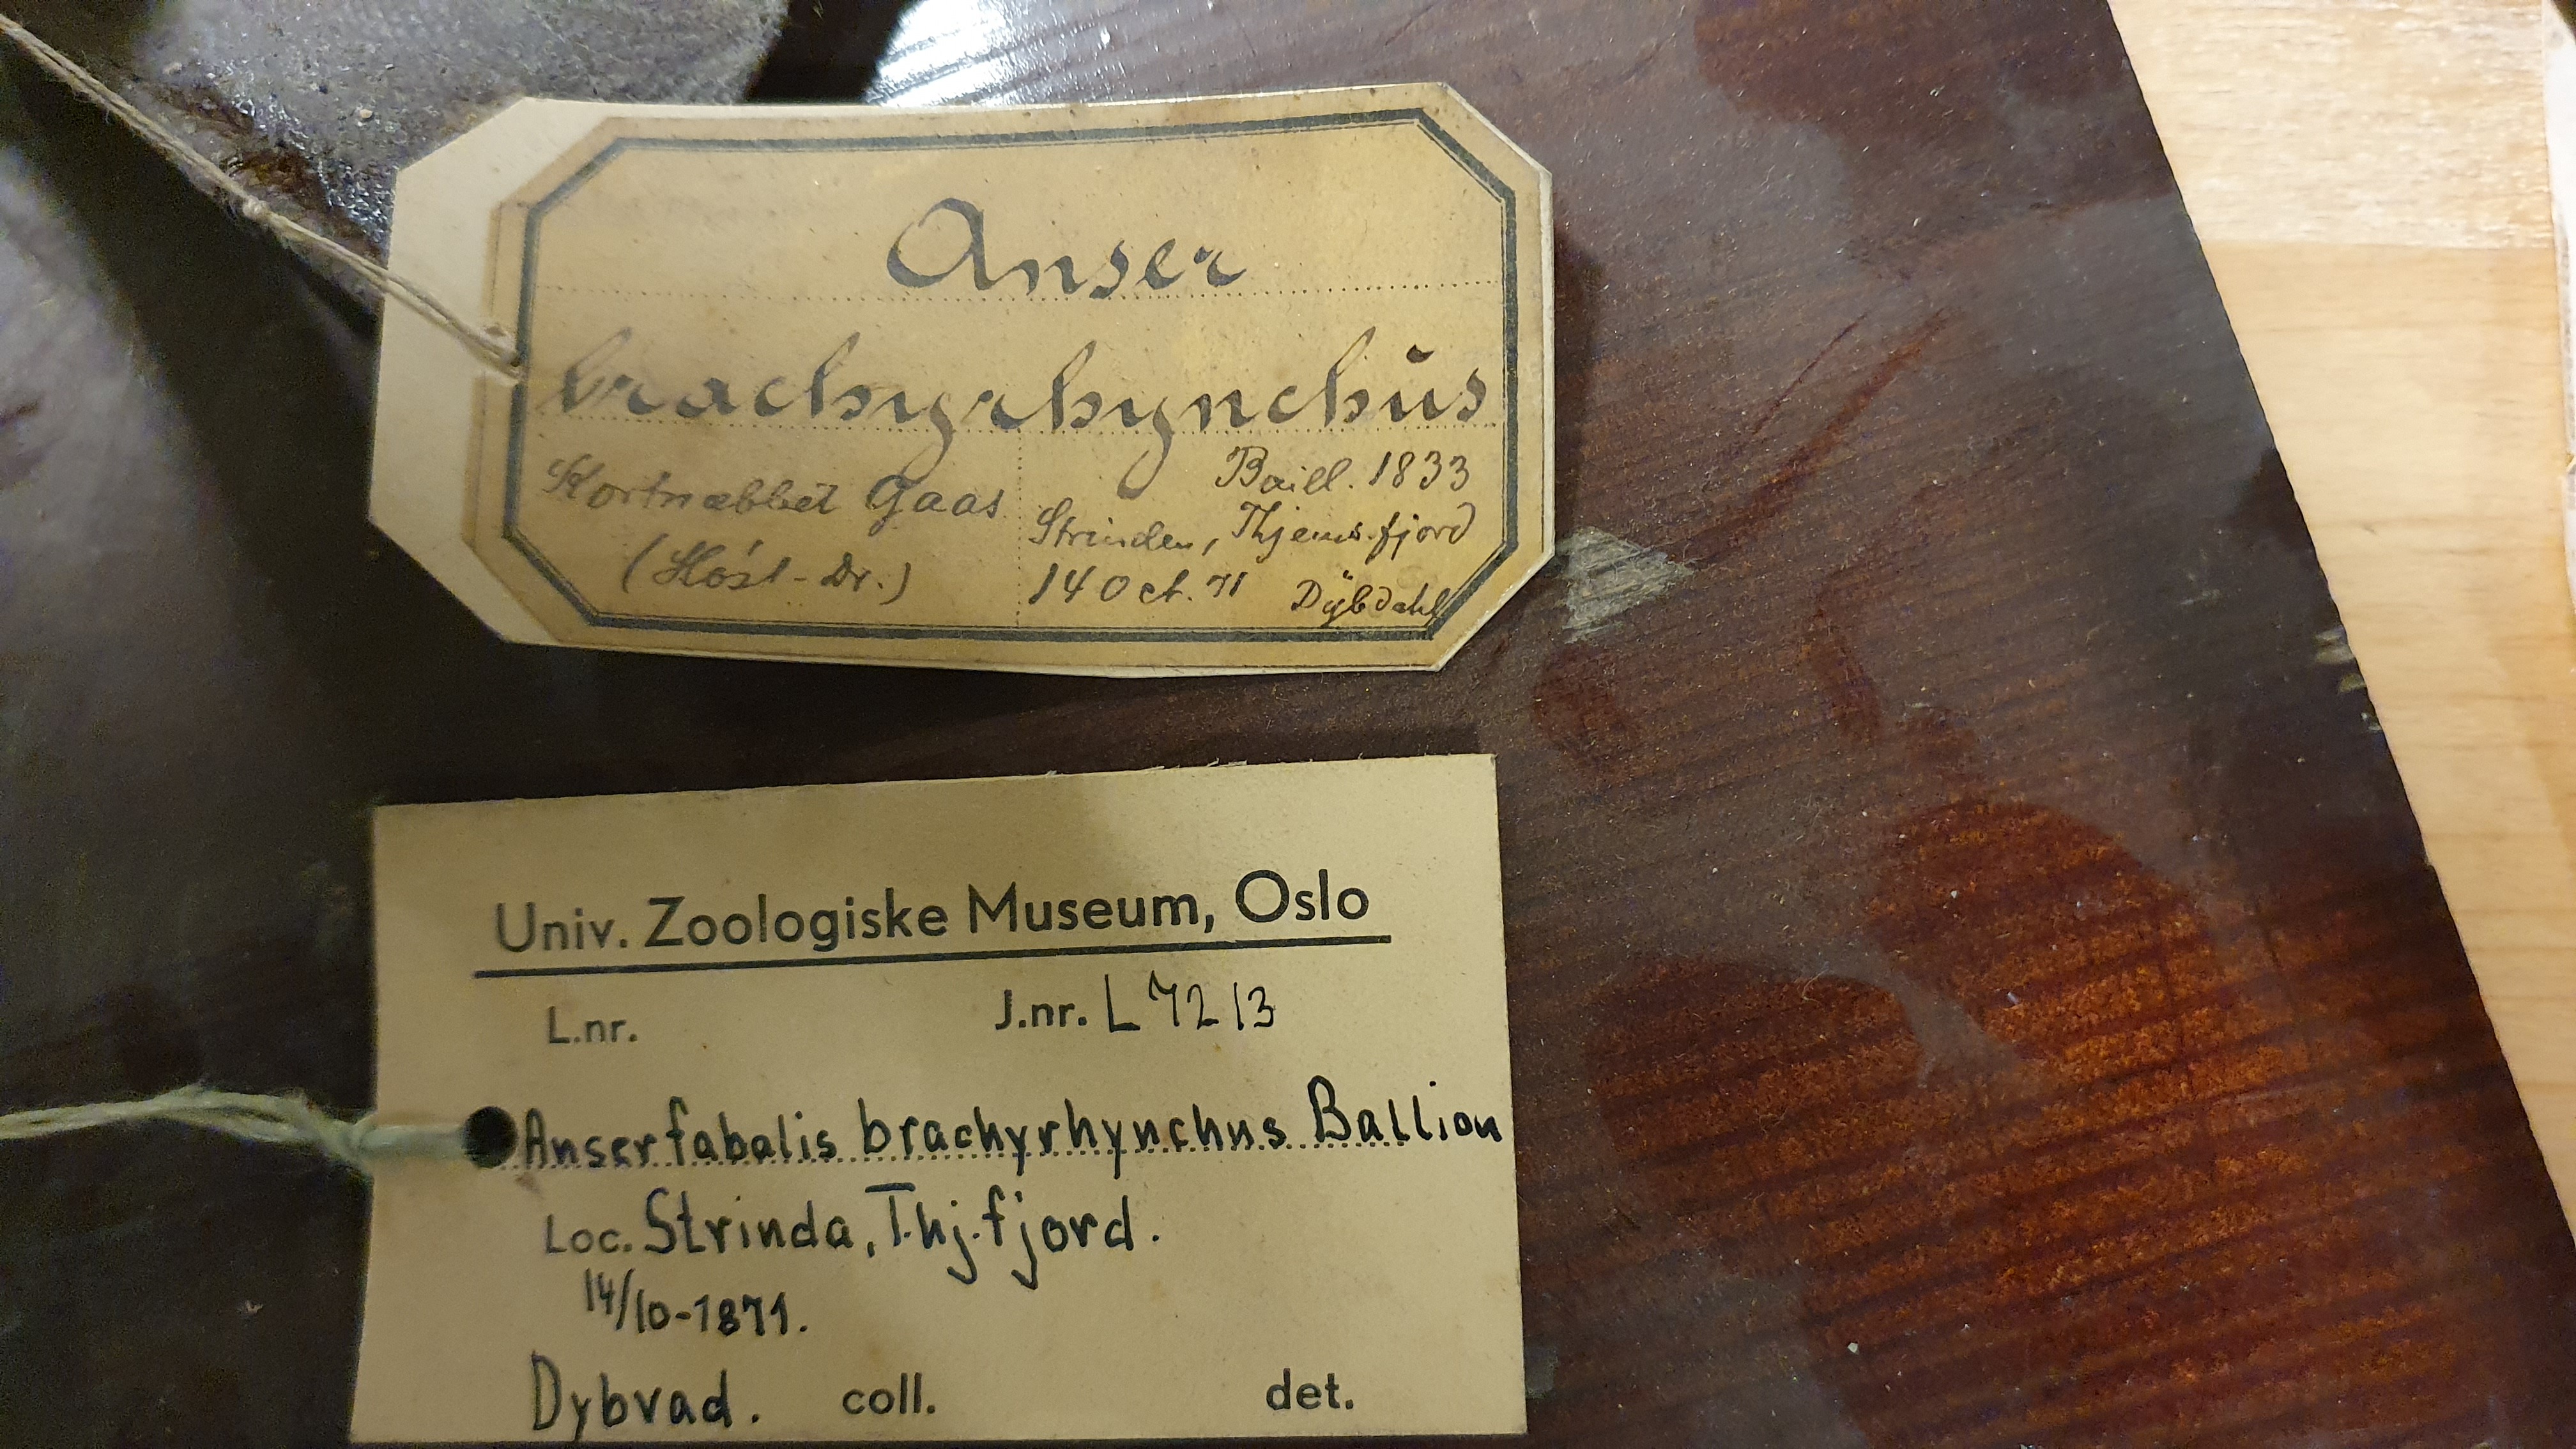 Anser
brachyrhynchus
Baill. 1833
Kortnæbbet Gaas
(Høst-Dr.)
Strinden, Thjems.fjord
14 Oct. 71 Dybdahl
Univ. Zoologiske Museum, Oslo
L.nr. J.nr. L 7213
Anser fabalis brachyrhynchus Ballion
Loc. Strinda, T.hj.fjord.
14/10-1871.
Dybvad. coll. det.